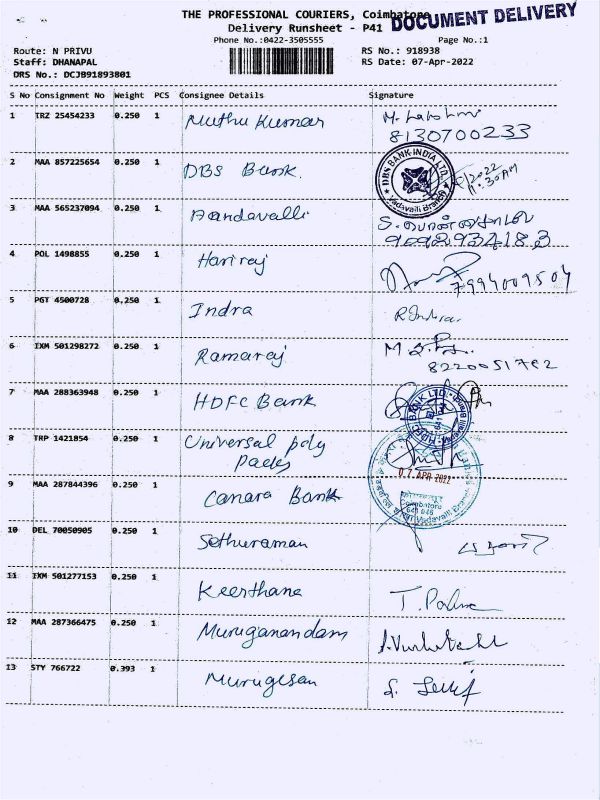 THE PROFESSIONAL COURIERS, Coimbatore
DOCUMENT DELIVERY
Delivery Runsheet - P41
Phone No.:0422-3505555
Page No.:1
Route: N PRIVU
RS No.: 918938
Staff: DHANAPAL
RS Date: 07-Apr-2022
DRS No.: DCJB91893801
S No Consignment No Weight PCS Consignee Details Signature
1 TRZ 25454233 0.250 1 Muthu Kumar
8130700233
2 MAA 857225654 0.250 1 DBS Bank.
DBS BANK INDIA LTD. Vadavalli Branch
11.30AM
3 MAA 565237094 0.250 1 Aandavalli
4 POL 1498855 0.250 1 Hariraj
7994009504
5 PGT 4500728 0.250 1 Indra R Indra
6 IXM 501298272 0.250 1 Ramaraj
8220051782
7 MAA 288363948 0.250 1 HDFC Bank
HDFC BANK LTD.
8 TRP 1421854 0.250 1 Universal poly
packs
07 APR 2022
9 MAA 287844396 0.250 1 Canara Bank
Coimbatore
641 046
Vadavalli Branch
10 DEL 70050905 0.250 1 Sethuraman
11 IXM 501277153 0.250 1 Keerthana
12 MAA 287366475 0.250 1 Muruganandam
13 STY 766722 0.393 1 Murugesan